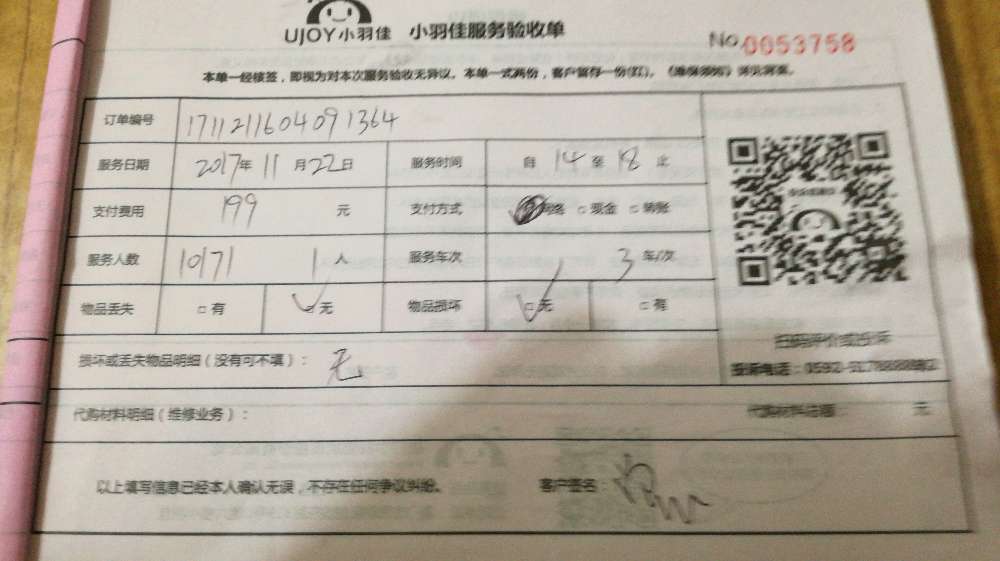 UJOY小羽佳 小羽佳服务验收单
No.0053758
本单一经接签，即视为对本次服务验收无异议。本单一式两份，客户留存一份(红)。
订单编号 1711211604091364
服务日期 2017年11月22日 服务时间 自 14 至 18 止
支付费用 199 元 支付方式 网络 □ 现金 □ 转账
服务人数 10171 1人 服务车次 3 车/次
物品丢失 □ 有 □ 无 物品损坏 □ 无 □ 有
扫码评价或投诉
损坏或丢失物品明细（没有可不填）： 无
投诉电话：0592-
代购材料明细（维修业务）： 代购材料总额： 元
以上填写信息已经本人确认无误，不存在任何争议纠纷。 客户签名：